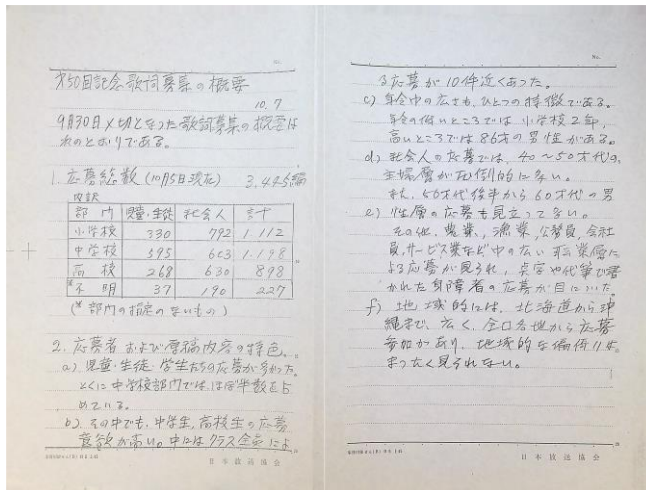 No.
第50回記念歌詞募集の概要
10.7
9月30日〆切となった歌詞募集の概要は
次のとおりである。
1. 応募総数(10月5日現在) 3,435編
内訳
部門 児童・生徒 社会人 計
小学校 330 792 1,112
中学校 595 603 1,198
高校 268 630 898
*不明 37 190 227
(*部門の指定のないもの)
2. 応募者および原稿内容の特色。
a) 児童・生徒・学生たちの応募が多かった。
とくに中学校部門では、ほぼ半数を占
めている。
b). その中でも、中学生、高校生の応募
意欲が高い。中にはクラス全員によ
日本放送協会
No.
る応募が10件近くあった。
c) 年令巾の広さも、ひとつの特徴である。
年令の低いところでは小学校2年、
高いところでは86才の男性がある。
d) 社会人の応募では、40〜50才代の
主婦層が圧倒的に多い。
また、50才代後半から60才代の男
e) 性層の応募も目立って多い。
その他、農業、漁業、公務員、会社
員、サービス業など巾の広い職業層に
よる応募が見られ、点字や代筆で書
かれた身障者の応募が目についた
f) 地域的には、北海道から沖
縄まで、広く、全口各地から応募
参加があり、地域的な偏倚は
まったく見られない。
日本放送協会